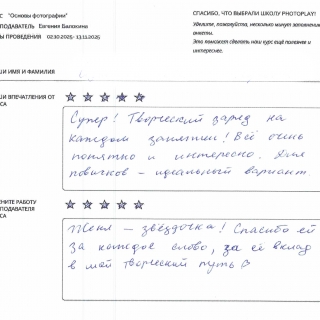 С "Основы фотографии"
ПОДАВАТЕЛЬ Евгения Балохина
Ы ПРОВЕДЕНИЯ 02.10.2025- 13.11.2025
СПАСИБО, ЧТО ВЫБРАЛИ ШКОЛУ PHOTOPLAY!
Уделите, пожалуйста, несколько минут заполнению
анкеты.
Это поможет сделать наш курс ещё полезнее и
интереснее.
ШИ ИМЯ И ФАМИЛИЯ
ШИ ВПЕЧАТЛЕНИЯ ОТ
СА
Супер! Творческий заряд на
каждом занятии! Всё очень
понятно и интересно. Для
новичков - идеальный вариант.
ЕНИТЕ РАБОТУ
ПОДАВАТЕЛЯ
СА
Женя - звёздочка! Спасибо ей
за каждое слово, за её вклад
в мой творческий путь ♡